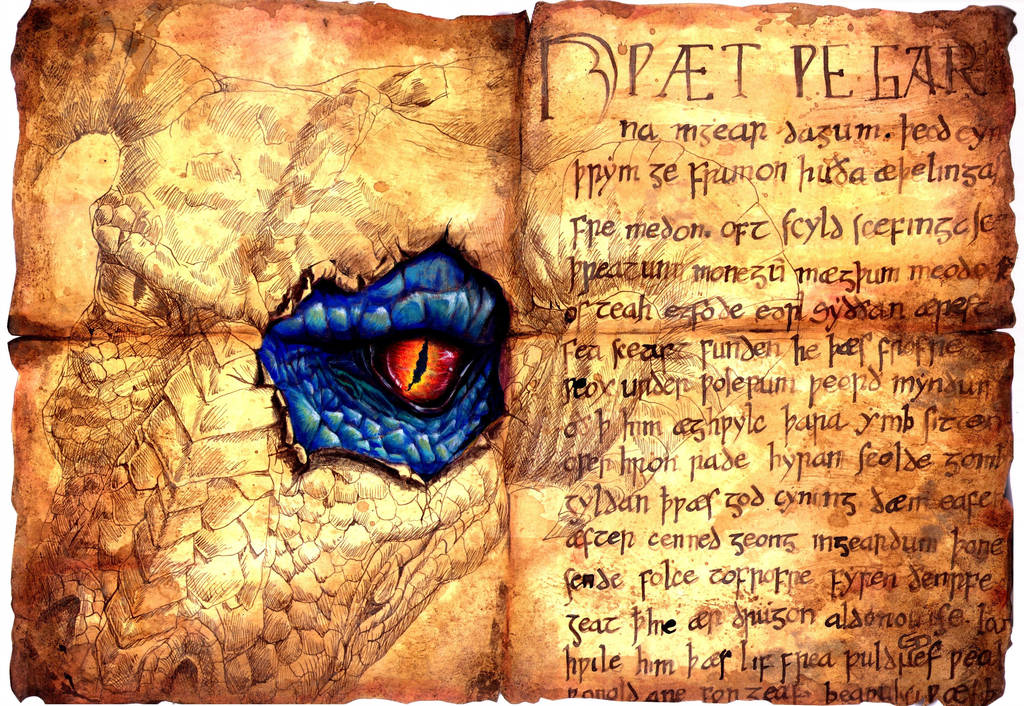 HǷÆT ǷE GAR
na ingear dagum. þeod cyn
þrym ge frumon huða æþelingaſ
fre medon. oft ſcyld ſcefing ſce
þreatum monegū mægþum meodo ſe
of teah egſode eorl syððan ærest
fea ſceaft funden he þæſ frofre
ƿeox under ƿolcnum ƿeorð myndum
oð ꝥ him æghƿylc þara ymb ſitten
ofer hron rade hyran ſcolde gomb
gyldan þƿæſ god cyning ðæm eafe
æfter cenned geong ingeardum þone
ſende folce tofrofre fyren ðearfe
geat þhie ær drugon aldor ſe. la
hƿile him þæſ lif frea ƿuldreſ ƿeal
ƿorold are for geaf